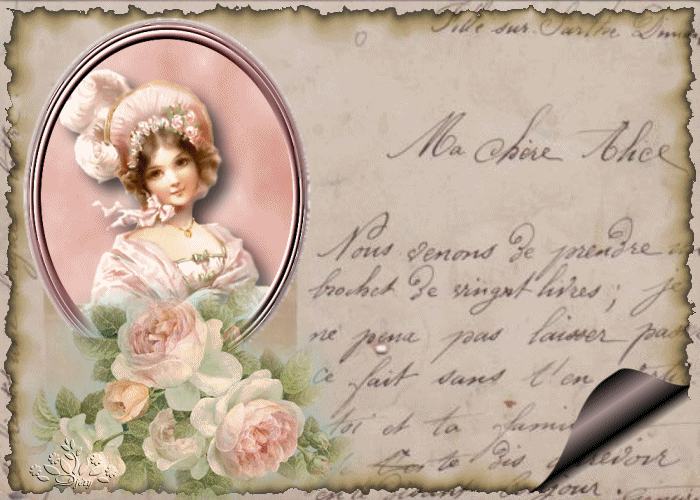 Fillé sur Sarthe Diman
Ma chère Alice
Nous venons de prendre
brochet de vingt livres ; je
ne peux pas laisser pas
ce fait sans t'en
toi et ta famil
te dis
revoir